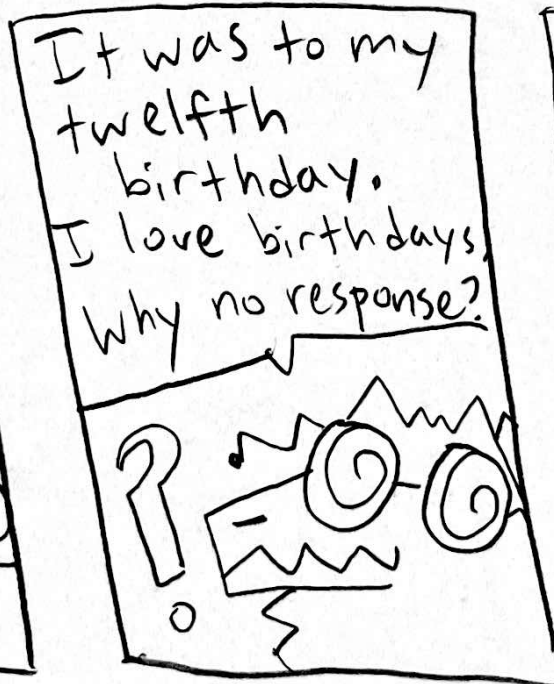 It was to my
twelfth
birthday.
I love birthdays.
Why no response?
?